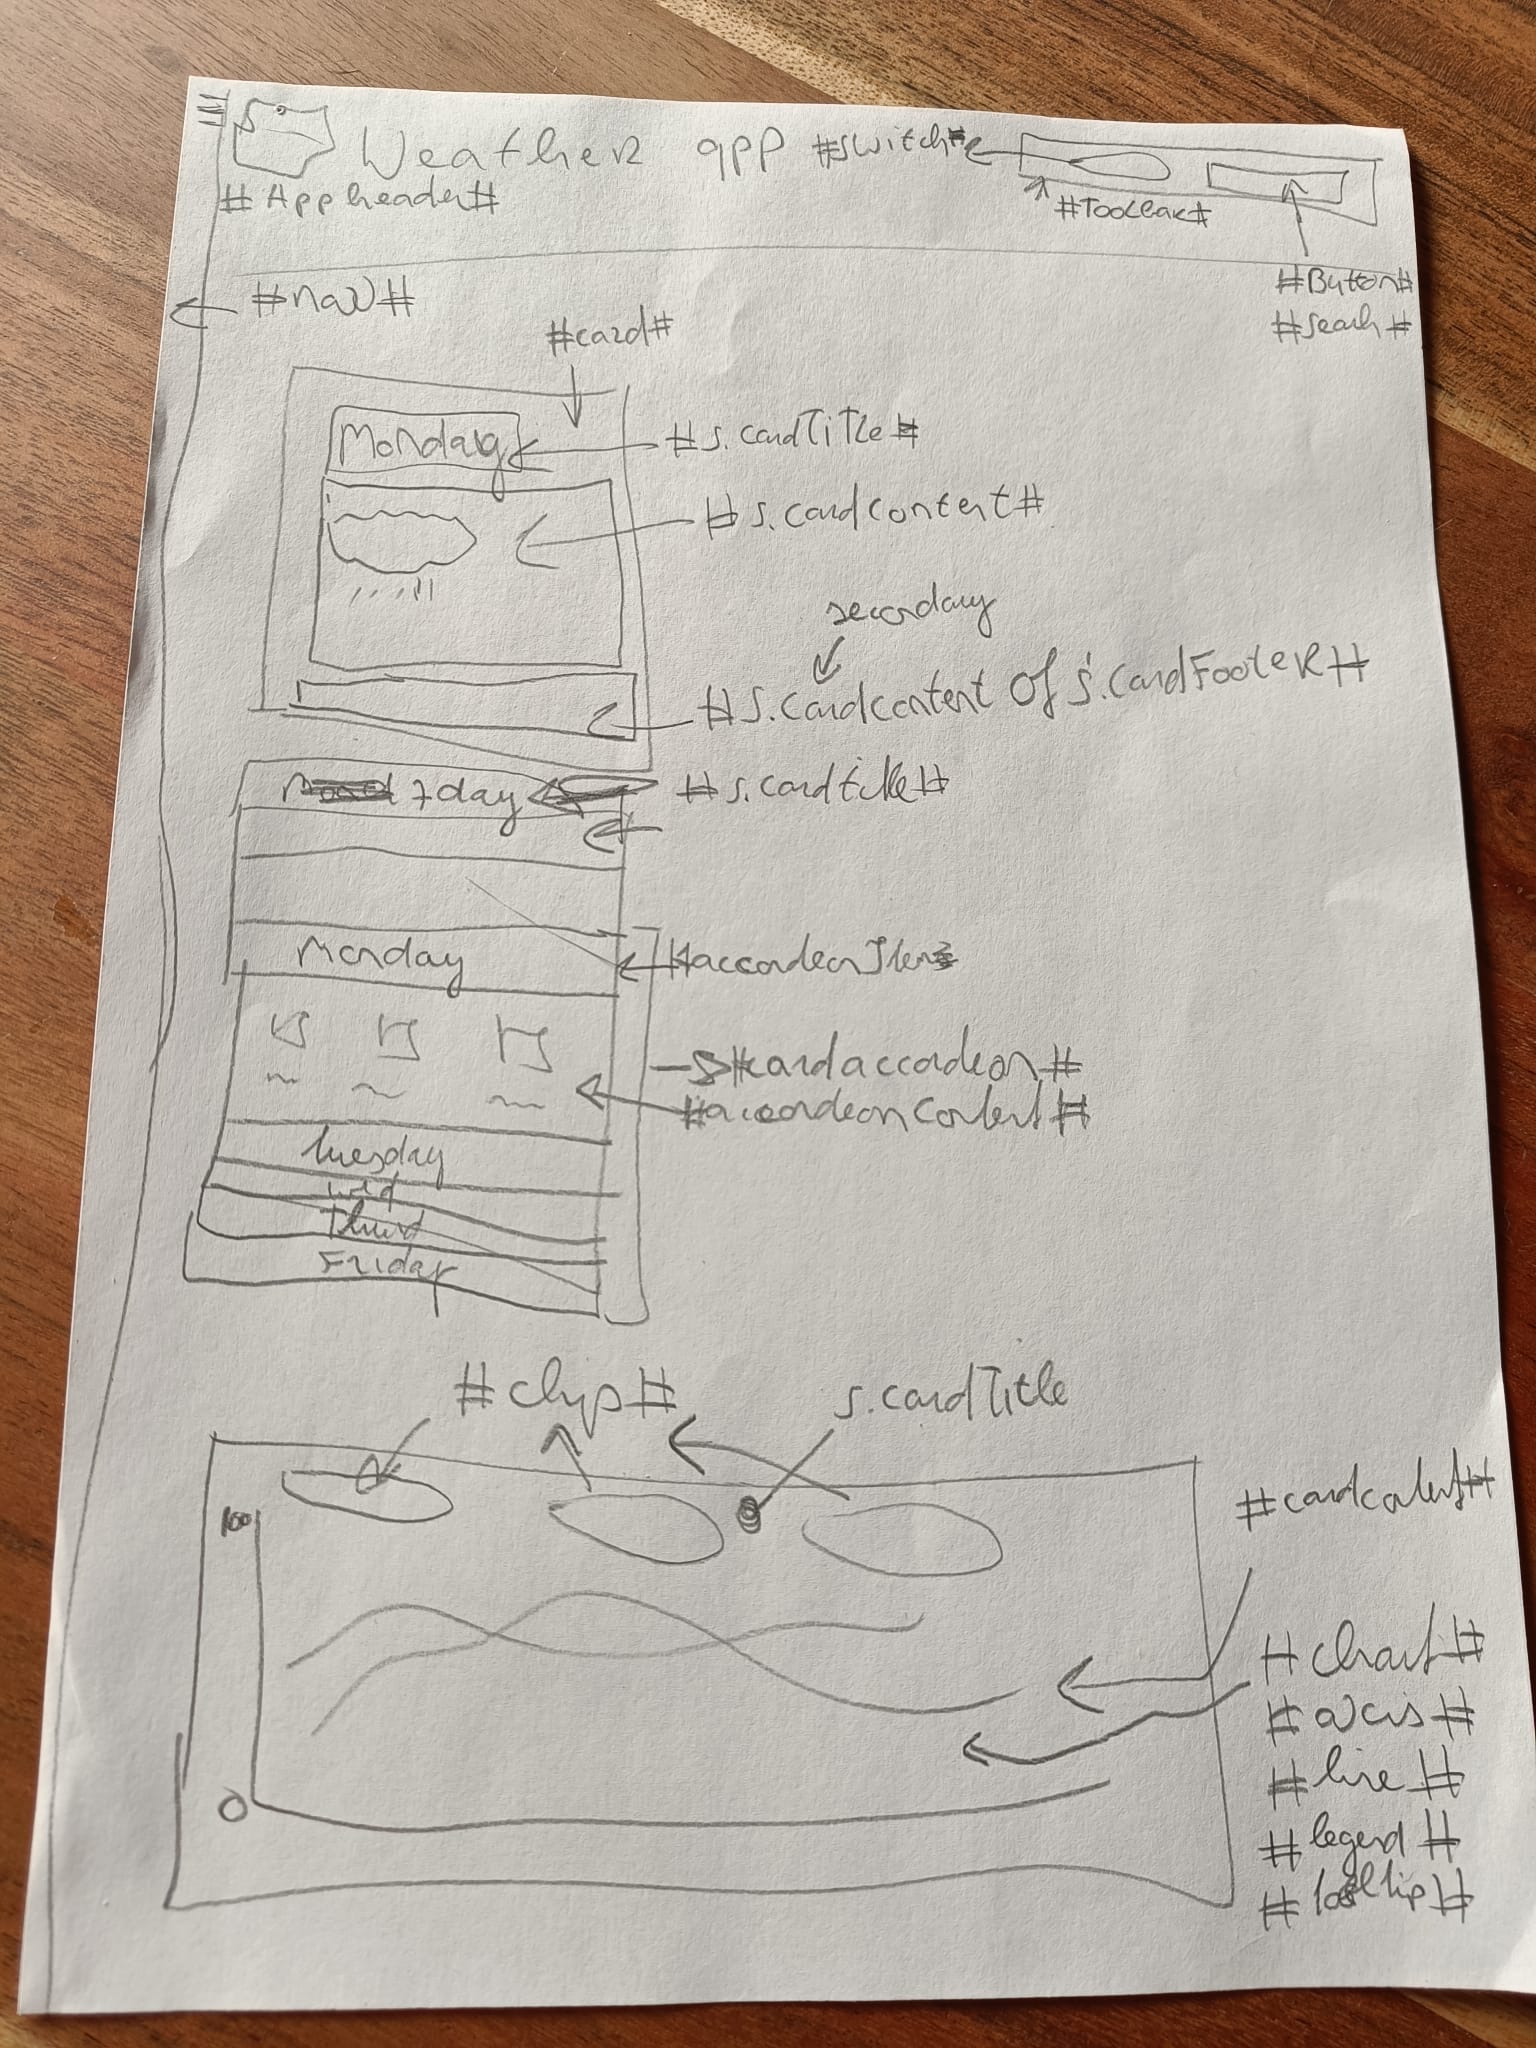 Weather app #switch#
#Appheader#
#Toolbar#
#nav#
#Button#
#Seach#
#card#
Monday
#s.cardTitle#
#s.cardcontent#
secondary
#s.cardcontent of s.cardFooter#
7day
#s.cardtitle#
Monday
#accordeonItem
#cardaccordeon#
#accordeonContent#
Tuesday
wed
Thurd
Friday
#chips#
s.cardTitle
#cardcontent#
100
#chart#
#axis#
#line#
#legend#
#tooltip#
0